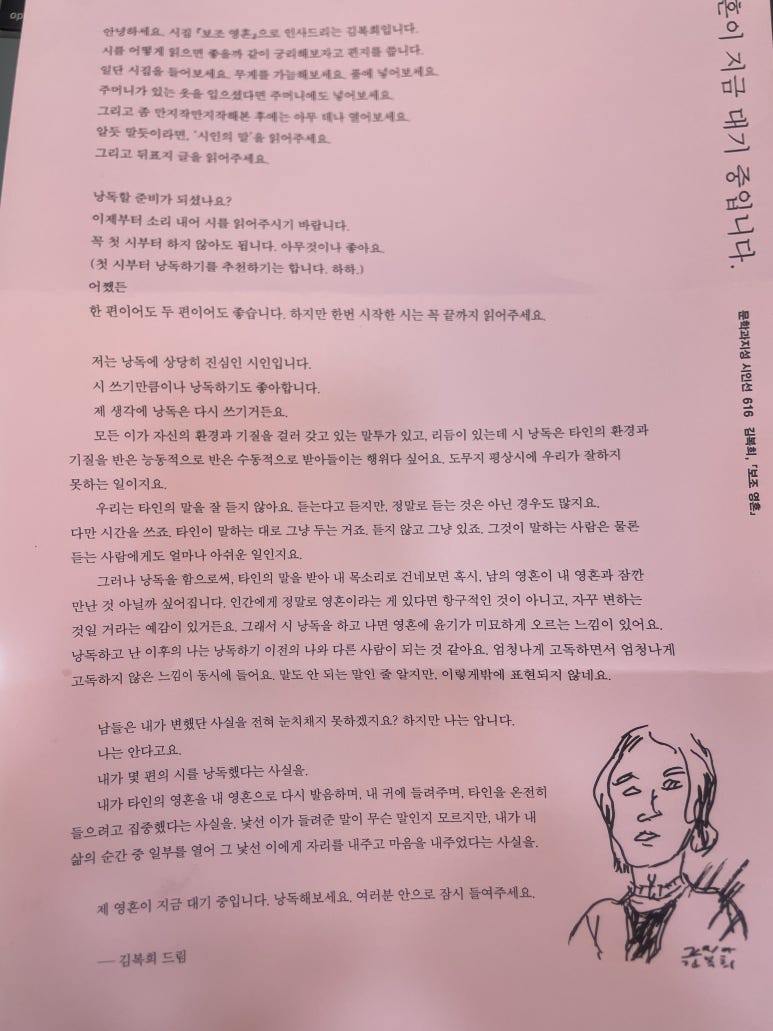 안녕하세요. 시집 『보조 영혼』으로 인사드리는 김복희입니다.
시를 어떻게 읽으면 좋을까 같이 궁리해보자고 편지를 씁니다.
일단 시집을 들어보세요. 무게를 가늠해보세요. 품에 넣어보세요.
주머니가 있는 옷을 입으셨다면 주머니에도 넣어보세요.
그리고 좀 만지작만지작해본 후에는 아무 데나 열어보세요.
알듯 말듯이라면, '시인의 말'을 읽어주세요.
그리고 뒤표지 글을 읽어주세요.
낭독할 준비가 되셨나요?
이제부터 소리 내어 시를 읽어주시기 바랍니다.
꼭 첫 시부터 하지 않아도 됩니다. 아무것이나 좋아요.
(첫 시부터 낭독하기를 추천하기는 합니다. 하하.)
어쨌든
한 편이어도 두 편이어도 좋습니다. 하지만 한번 시작한 시는 꼭 끝까지 읽어주세요.
저는 낭독에 상당히 진심인 시인입니다.
시 쓰기만큼이나 낭독하기도 좋아합니다.
제 생각에 낭독은 다시 쓰기거든요.
모든 이가 자신의 환경과 기질을 걸러 갖고 있는 말투가 있고, 리듬이 있는데 시 낭독은 타인의 환경과
기질을 반은 능동적으로 반은 수동적으로 받아들이는 행위다 싶어요. 도무지 평상시에 우리가 잘하지
못하는 일이지요.
우리는 타인의 말을 잘 듣지 않아요. 듣는다고 듣지만, 정말로 듣는 것은 아닌 경우도 많지요.
다만 시간을 쓰죠. 타인이 말하는 대로 그냥 두는 거죠. 듣지 않고 그냥 있죠. 그것이 말하는 사람은 물론
듣는 사람에게도 얼마나 아쉬운 일인지요.
그러나 낭독을 함으로써, 타인의 말을 받아 내 목소리로 건네보면 혹시, 남의 영혼이 내 영혼과 잠깐
만난 것 아닐까 싶어집니다. 인간에게 정말로 영혼이라는 게 있다면 항구적인 것이 아니고, 자꾸 변하는
것일 거라는 예감이 있거든요. 그래서 시 낭독을 하고 나면 영혼에 윤기가 미묘하게 오르는 느낌이 있어요.
낭독하고 난 이후의 나는 낭독하기 이전의 나와 다른 사람이 되는 것 같아요. 엄청나게 고독하면서 엄청나게
고독하지 않은 느낌이 동시에 들어요. 말도 안 되는 말인 줄 알지만, 이렇게밖에 표현되지 않네요.
남들은 내가 변했단 사실을 전혀 눈치채지 못하겠지요? 하지만 나는 압니다.
나는 안다고요.
내가 몇 편의 시를 낭독했다는 사실을.
내가 타인의 영혼을 내 영혼으로 다시 발음하며, 내 귀에 들려주며, 타인을 온전히
들으려고 집중했다는 사실을. 낯선 이가 들려준 말이 무슨 말인지 모르지만, 내가 내
삶의 순간 중 일부를 열어 그 낯선 이에게 자리를 내주고 마음을 내주었다는 사실을.
제 영혼이 지금 대기 중입니다. 낭독해보세요. 여러분 안으로 잠시 들여주세요.
— 김복희 드림
혼이 지금 대기 중입니다.
문학과지성 시인선 616 김복희, 『보조 영혼』
김복희